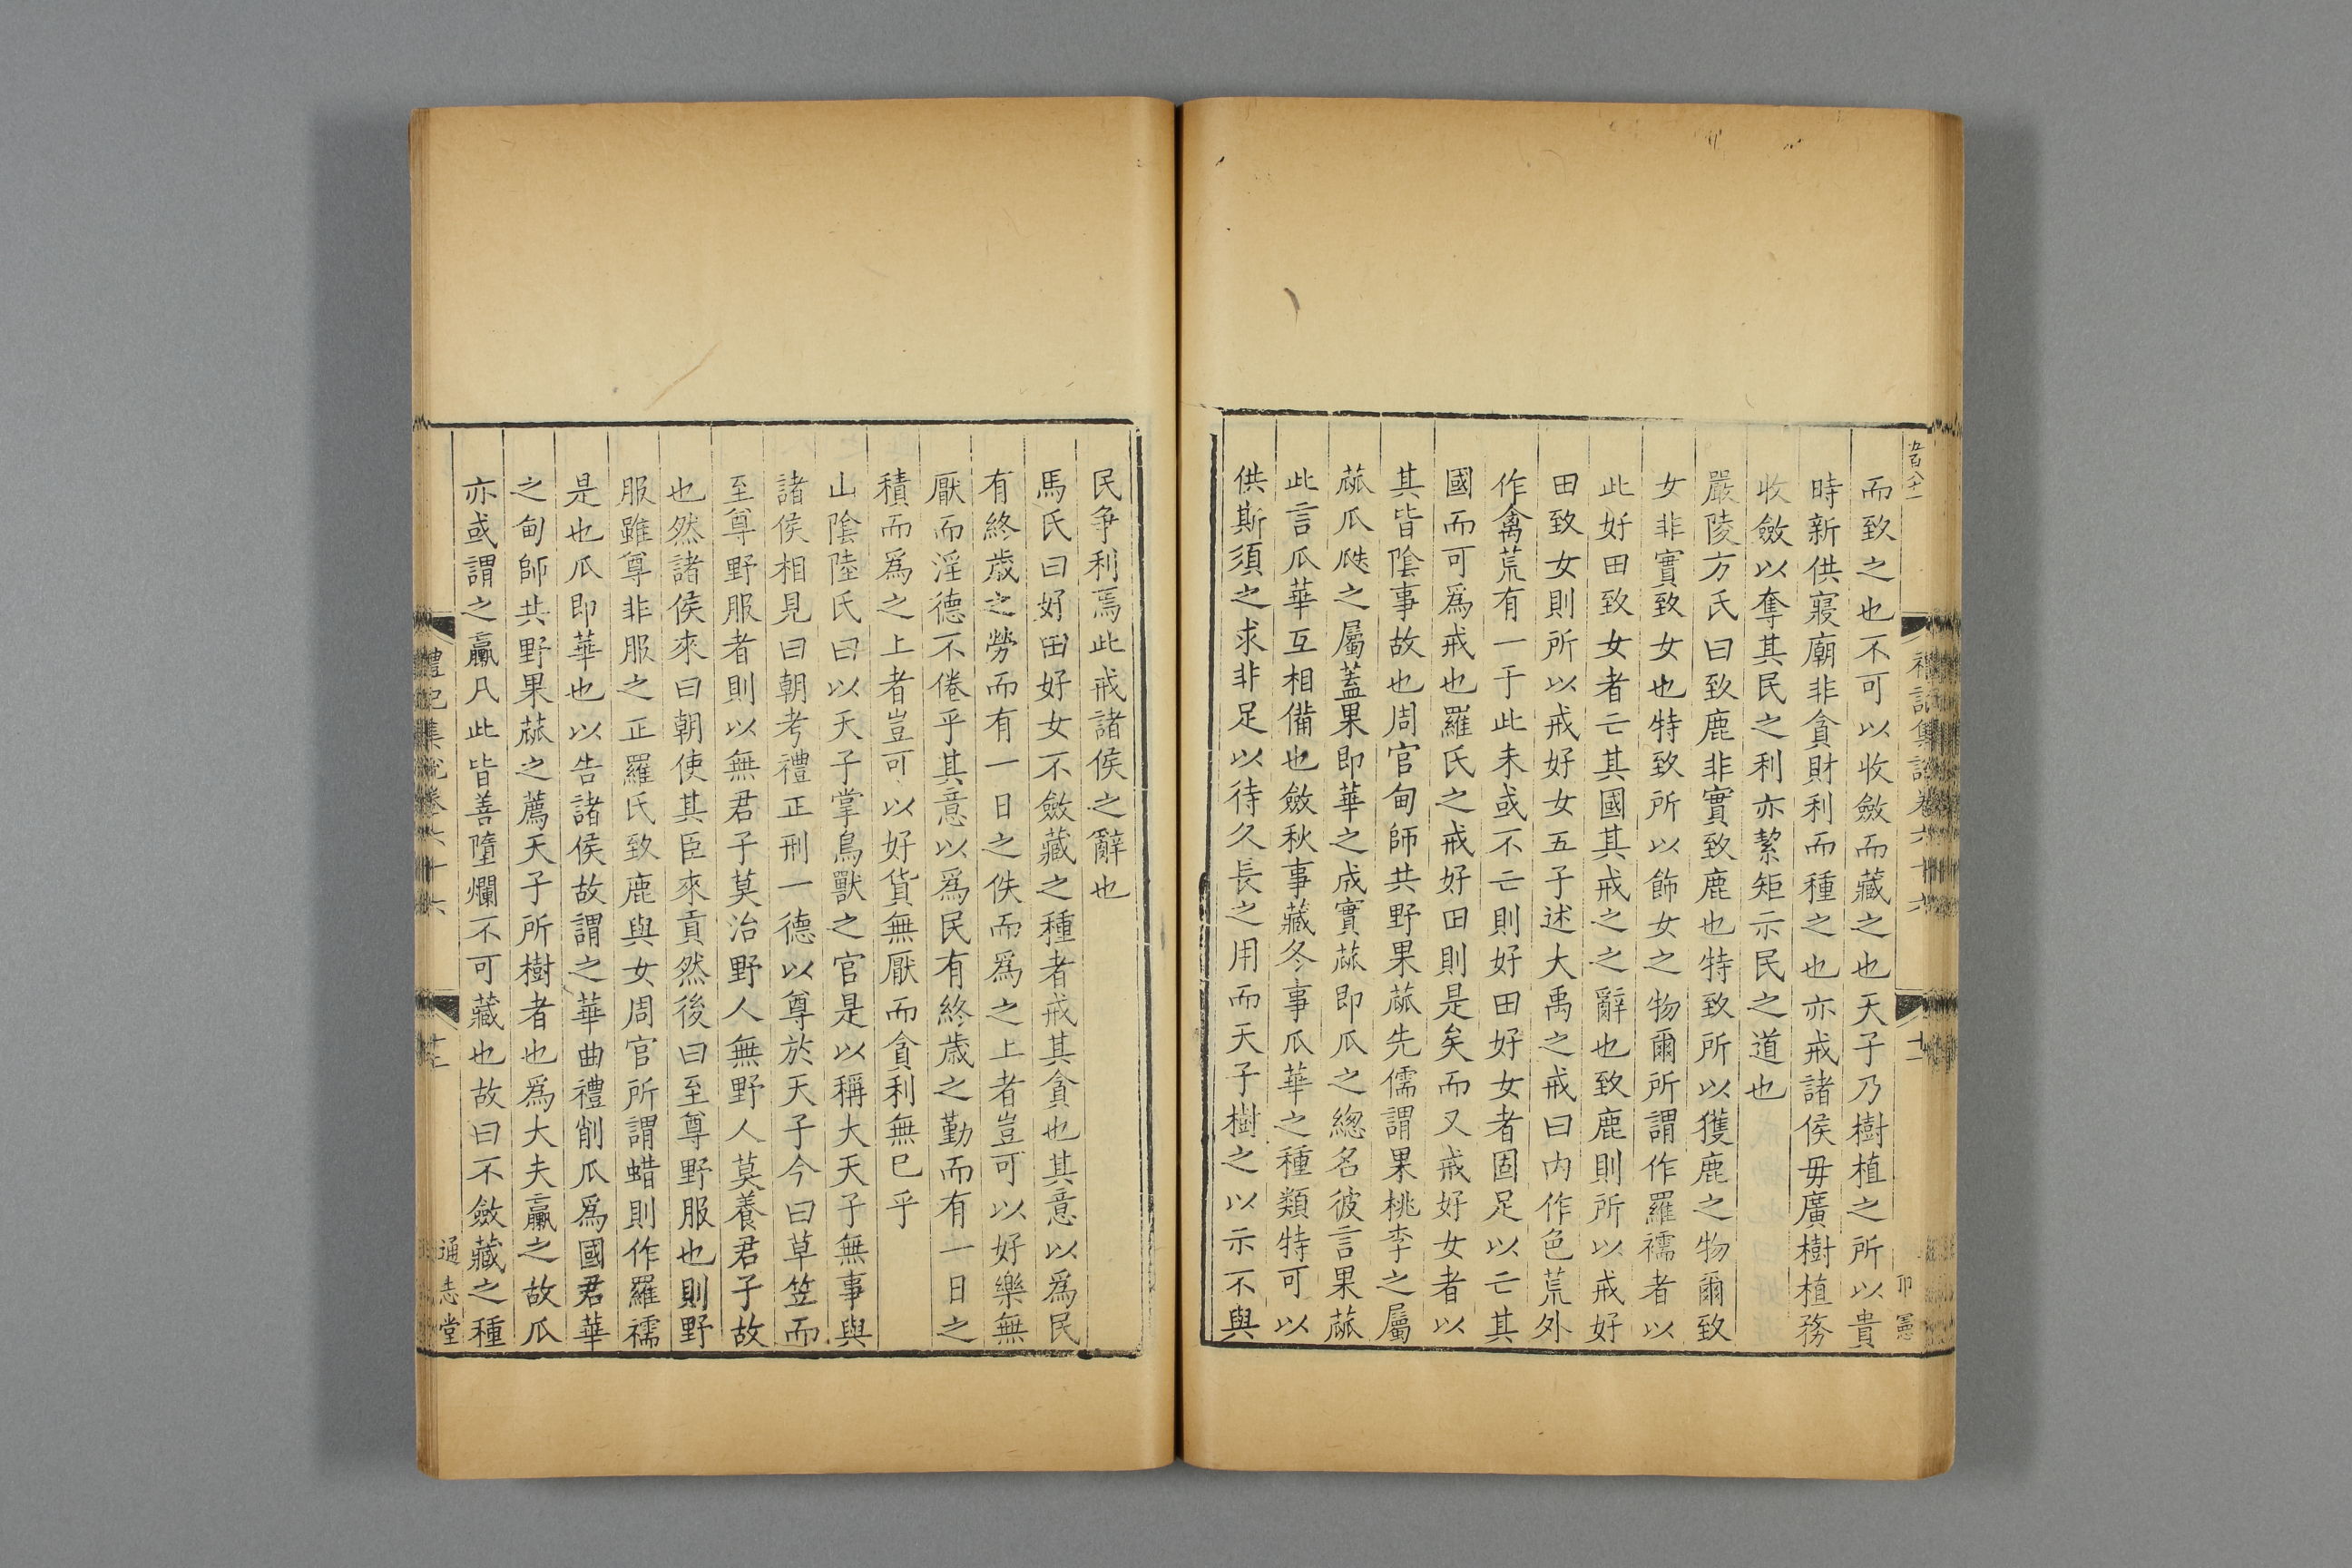 而致之也不可以收斂而藏之也天子乃樹植之所以貴
時新供寢廟非貪財利而種之也亦戒諸侯毋廣樹植務
收斂以奪其民之利亦絜矩示民之道也
嚴陵方氏曰致鹿非實致鹿也特致所以獲鹿之物爾致
女非實致女也特致所以飾女之物爾所謂作羅襦者以
此好田致女者亡其國其戒之之辭也致鹿則所以戒好
田致女則所以戒好女五子述大禹之戒曰內作色荒外
作禽荒有一于此未或不亡則好田好女者固足以亡其
國而可為戒也羅氏之戒好田則是矣而又戒好女者以
其皆陰事故也周官甸師共野果蓏先儒謂果桃李之屬
蓏瓜瓞之屬蓋果即華之成實蓏即瓜之緫名彼言果蓏
此言瓜華互相備也斂秋事藏冬事瓜華之種類特可以
供斯須之求非足以待久長之用而天子樹之以示不與
禮記集說卷六十六
十二
民争利焉此戒諸侯之辭也
馬氏曰好田好女不斂藏之種者戒其貪也其意以為民
有終歲之勞而有一日之佚而為之上者豈可以好樂無
厭而淫德不倦乎其意以為民有終歲之勤而有一日之
積而為之上者豈可以好貨無厭而貪利無已乎
山陰陸氏曰以天子掌鳥獸之官是以稱大天子無事與
諸侯相見曰朝考禮正刑一德以尊於天子今曰草笠而
至尊野服者則以無君子莫治野人無野人莫養君子故
也然諸侯來曰朝使其臣來貢然後曰至尊野服也則野
服雖尊非服之正羅氏致鹿與女周官所謂蜡則作羅襦
是也瓜即華也以告諸侯故謂之華曲禮削瓜為國君華
之甸師共野果蓏之薦天子所樹者也為大夫蠃之故瓜
亦或謂之蠃凡此皆善墮爛不可藏也故曰不斂藏之種
禮記集說卷六十六
通志堂